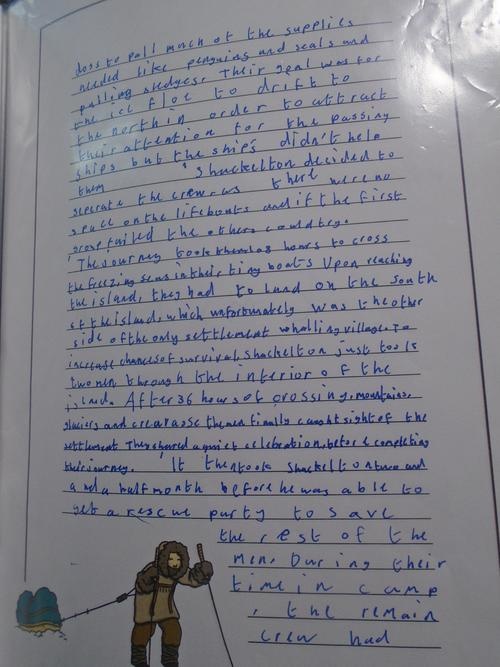 dogs to pull much of the supplies
needed like penguins and seals and
pulling sledges. Their goal was for
the ice floe to drift to
the north in order to attract
their attention for the passing
ships but the ships didn't help
them Shackelton decided to
seperate the crew as there were no
space on the lifeboats and if the first
group failed the others could try.
The journey took them hours to cross
the freezing seas in their tiny boats Upon reaching
the island, they had to land on the south
of the island, which unfortunately was the other
side of the only settlement whalling village. To
increase chances of survival, shackelton just took
two men through the interior of the
island. After 36 hours of crossing, mountains,
glaciers and crevasse the men finally caught sight of the
settlement They shared a quiet celebration, before completing
their journey. It then took Shackelton and
and a half month before he was able to
get a rescue party to save
the rest of the
men. During their
time in camp
, the remain
crew had